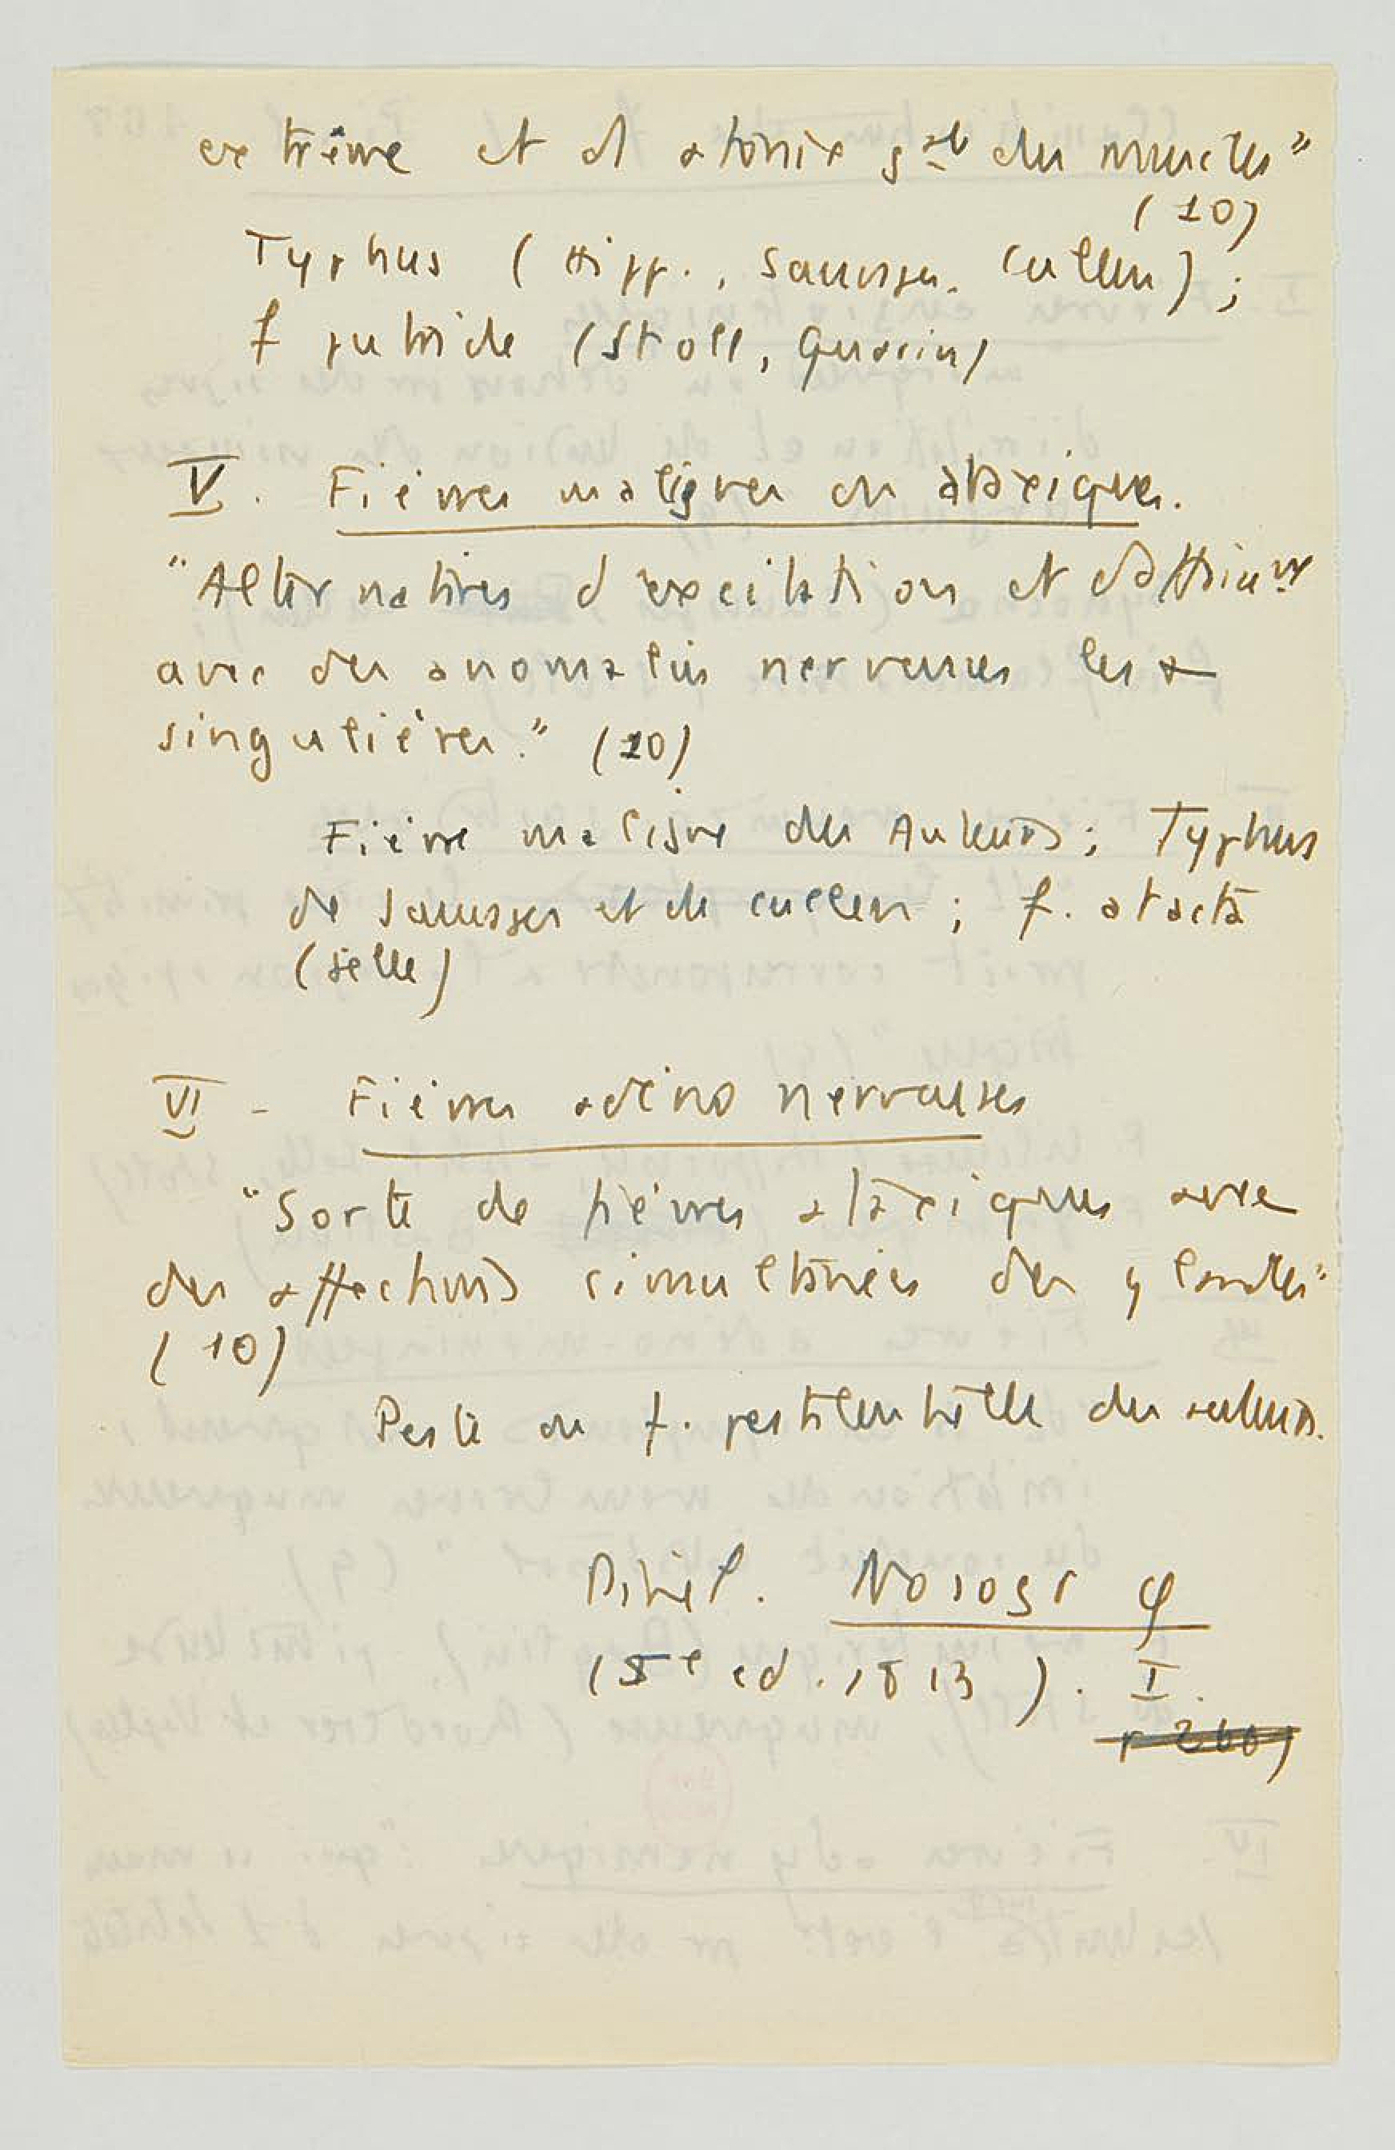 extrême et d'atonie gale des muscles"
(10)
Typhus (Hipp., Sauvages. Cullen);
f putride (Stoll, Quarin)
V. Fièvres malignes ou ataxiques.
"Alternatives d'excitation et d'
avec des anomalies nerveuses les +
singulières." (10)
Fièvre maligne des Auteurs; Typhus
de Sauvages et de Cullen; f. atacta
(Selle)
VI - Fièvres adéno nerveuses
"Sorte de fièvres ataxiques avec
des affections simultanées des glandes"
(10)
Peste ou f. pestilentielle des auteurs.
Pinel. Nosogr φ
(5e ed. 1813). I.
p 260)